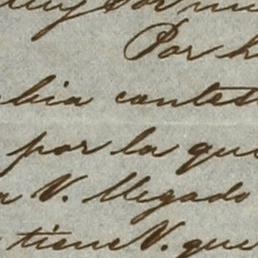 por m
Por h
bia contes
por la que
a V. llegado
tiene V. que